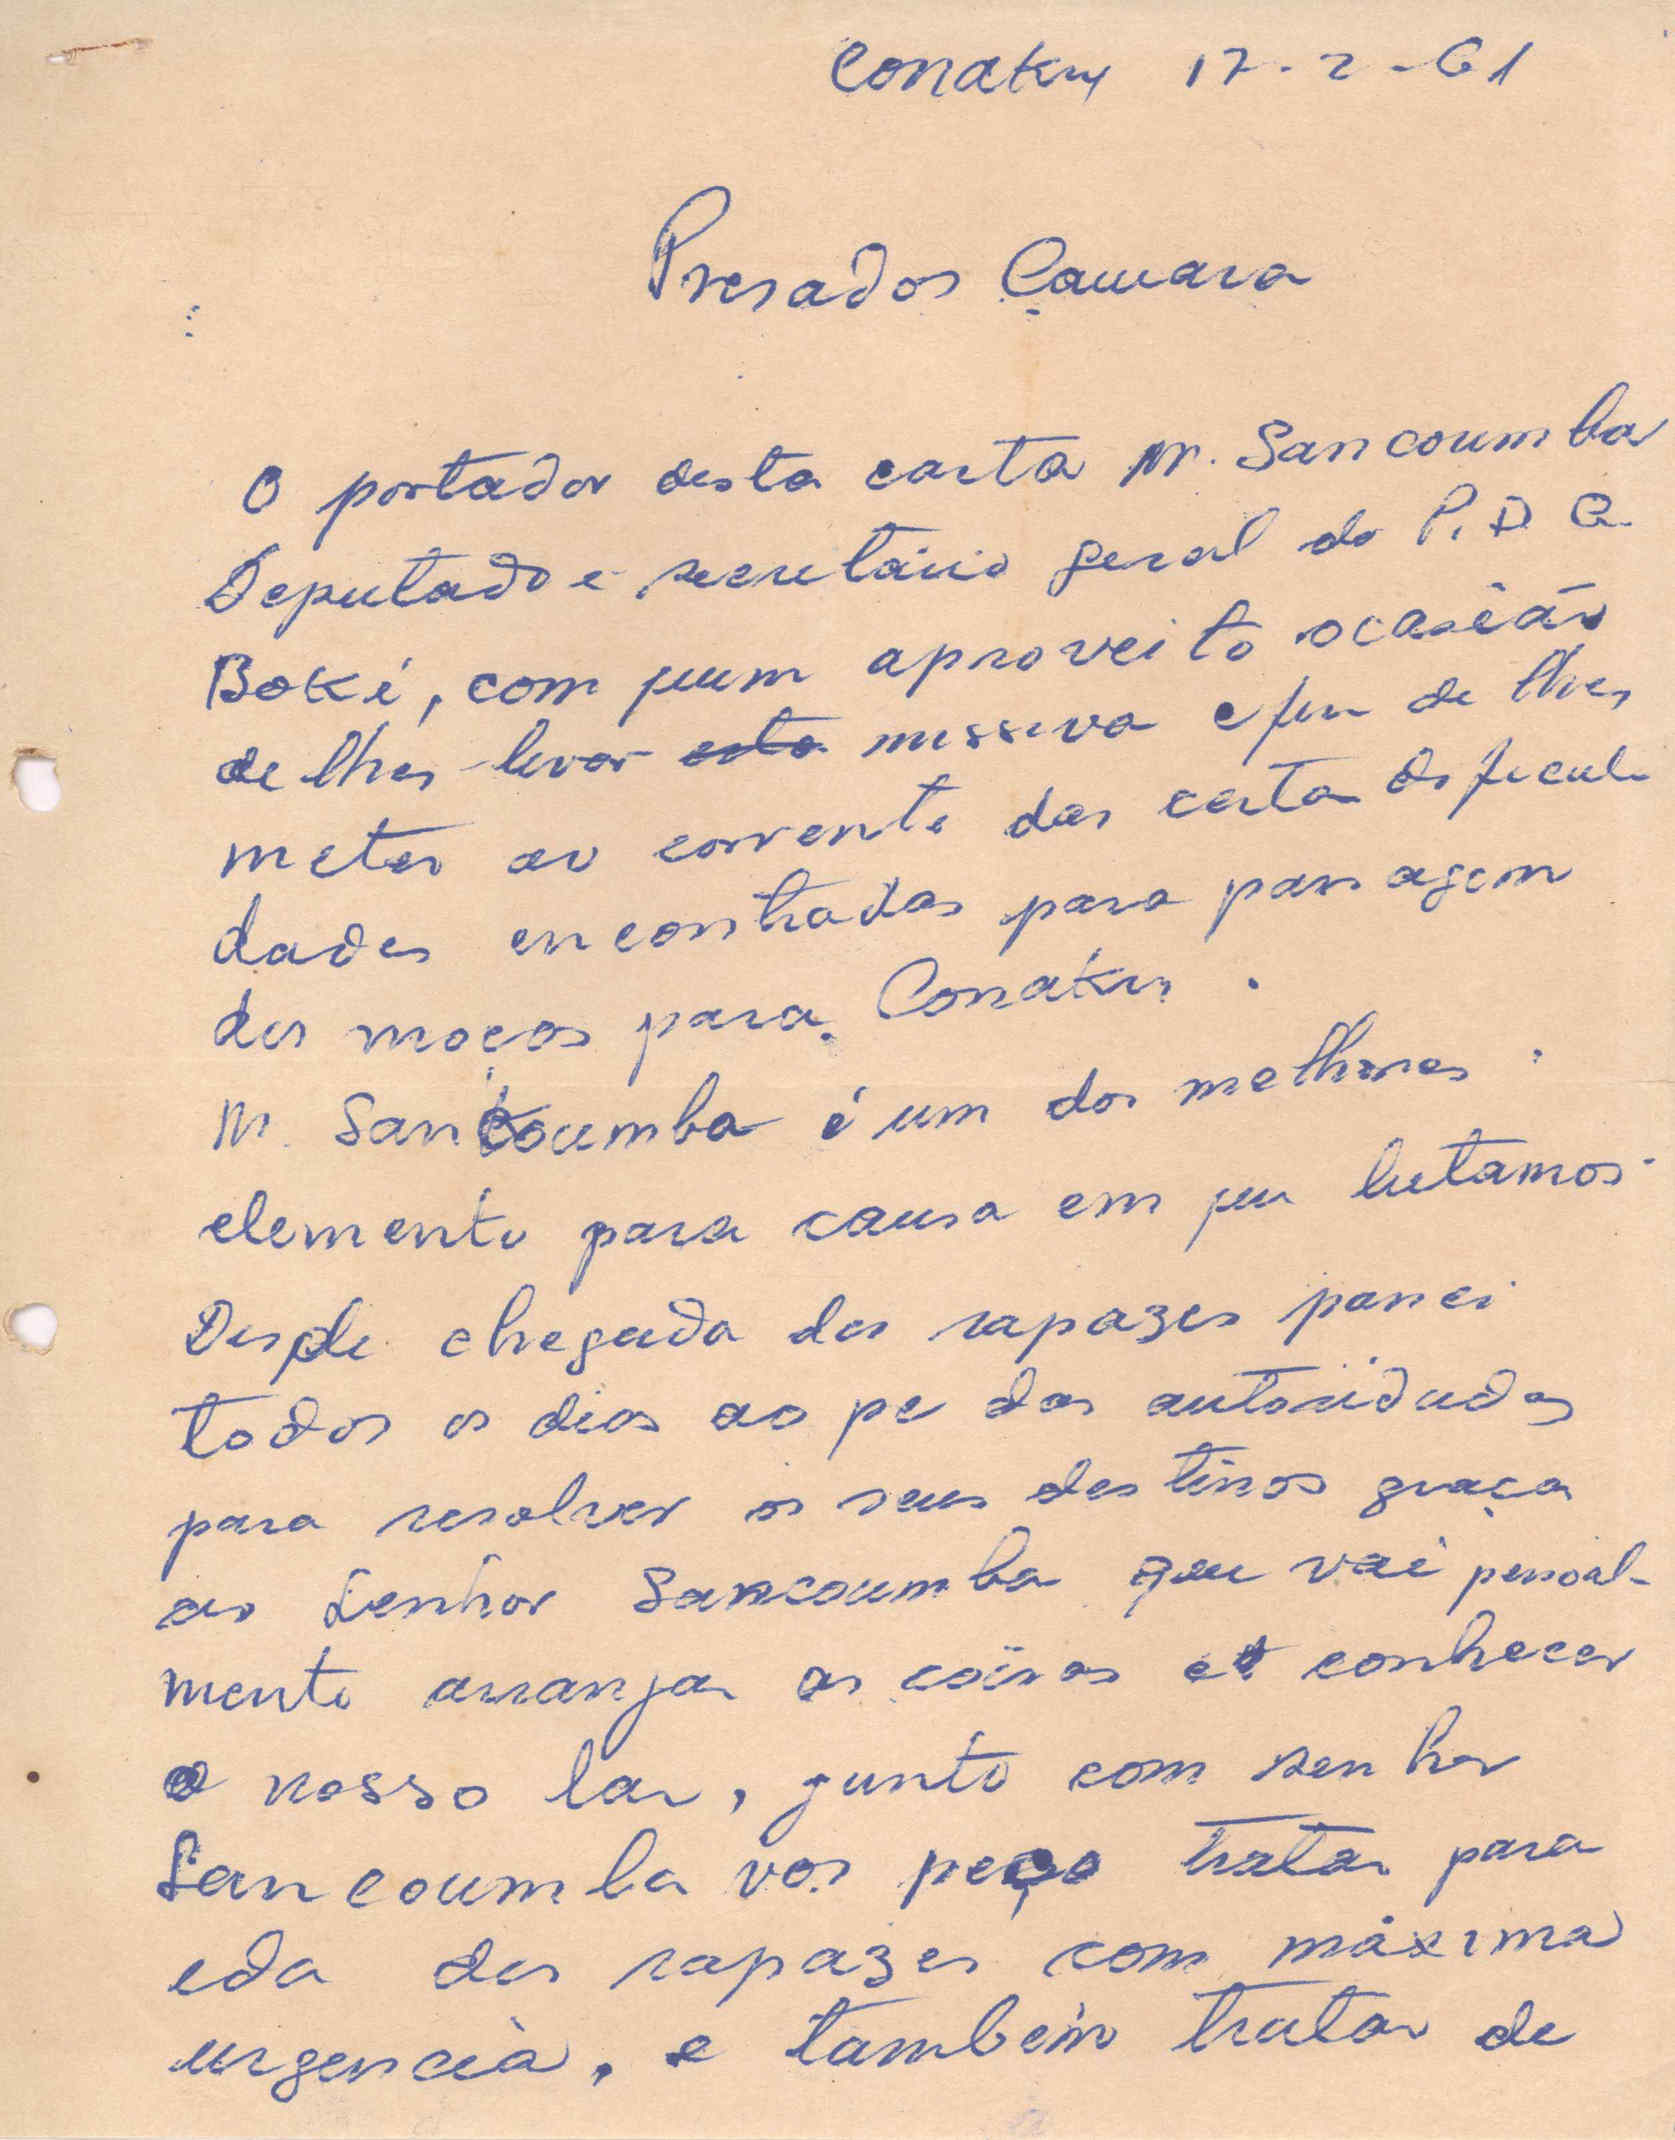 Conakry 17-2-61
Presados Camara
O portador desta carta Mr. Sancoumba
Deputado e secretário geral do P. D. G.
Boké, com quem aproveito ocasião
de lhes levar esta missiva e fim de lhes
meter ao corrente das certa dificul-
dades encontradas para passagem
dos moços para Conakry.
M. Sancoumba é um dos melhores
elemento para causa em que lutamos.
Desde chegada dos rapazes passei
todos os dias ao pe das autoridades
para resolver os seus destinos graça
ao Senhor Sancoumba que vai pessoal-
mente arranjar as coisas et conhecer
o nosso lar, junto com senhor
Sancoumba vos peço tratar para
eda dos rapazes com máxima
urgencià, e também tratar de